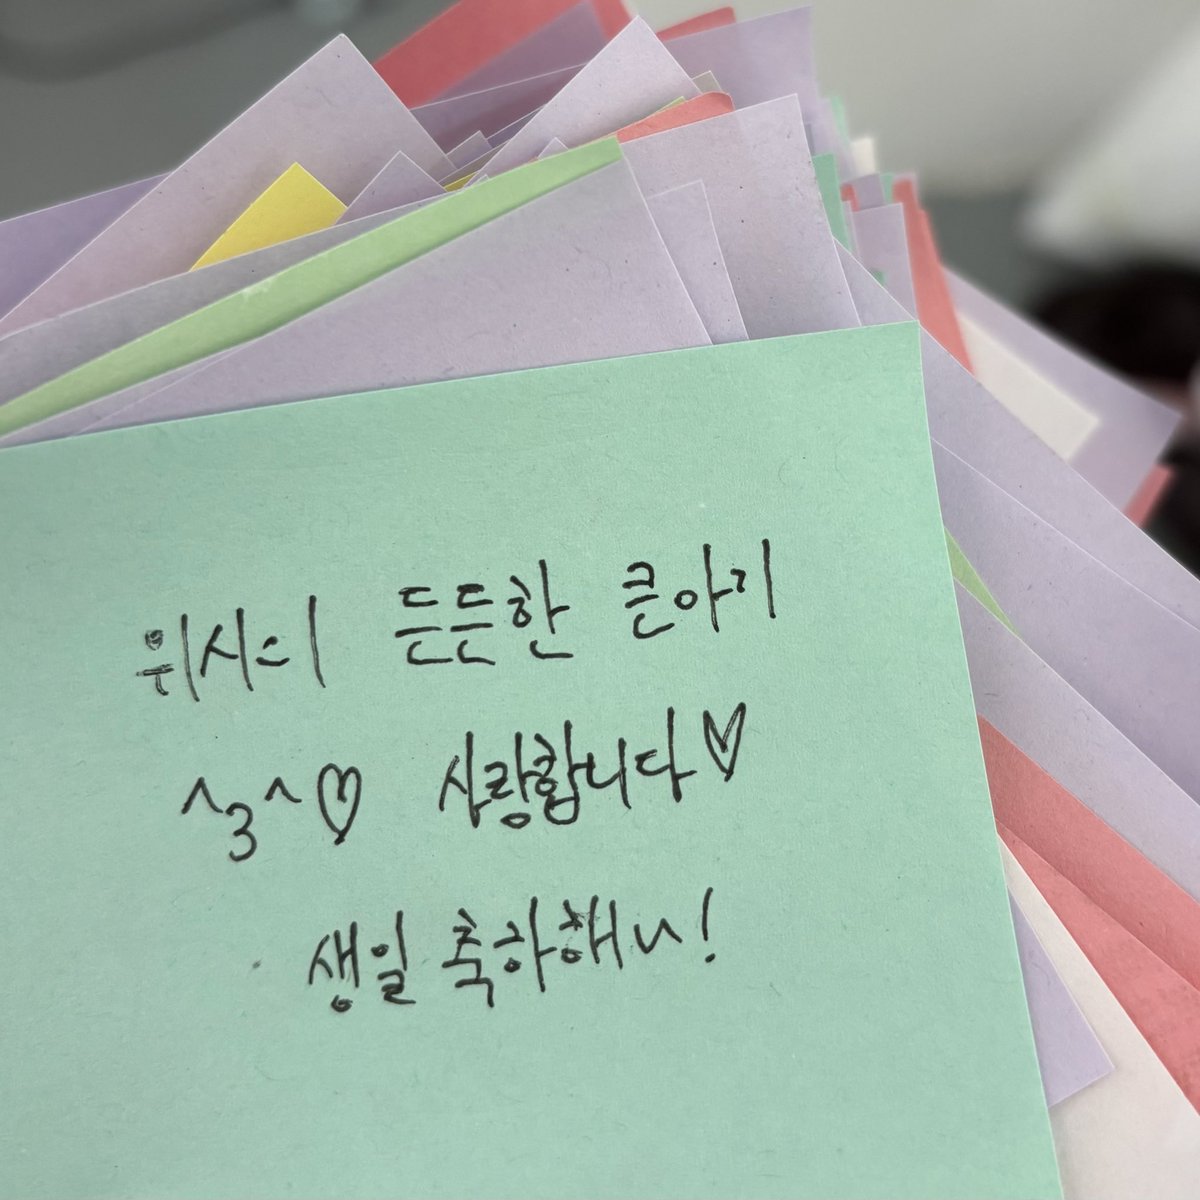 위시의 든든한 큰아기
^3^♡ 사랑합니다♡
생일 축하해ㅆ!